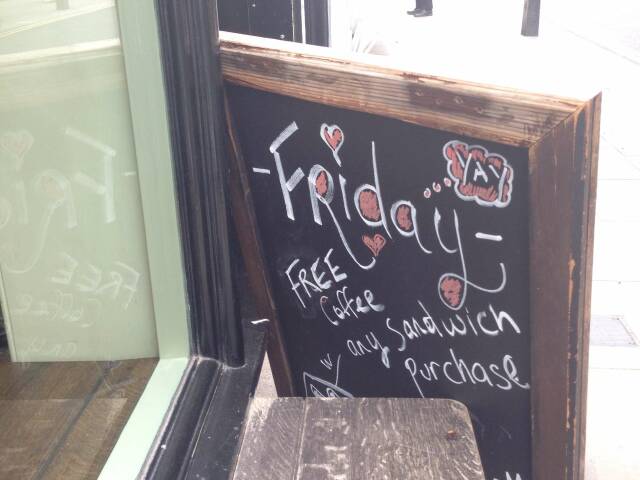 -Friday-
YAY
FREE
Coffee
w/
any Sandwich
purchase